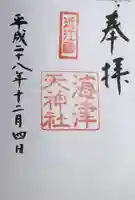 奉拝
近江国
海津
天神社
平成二十八年十二月四日